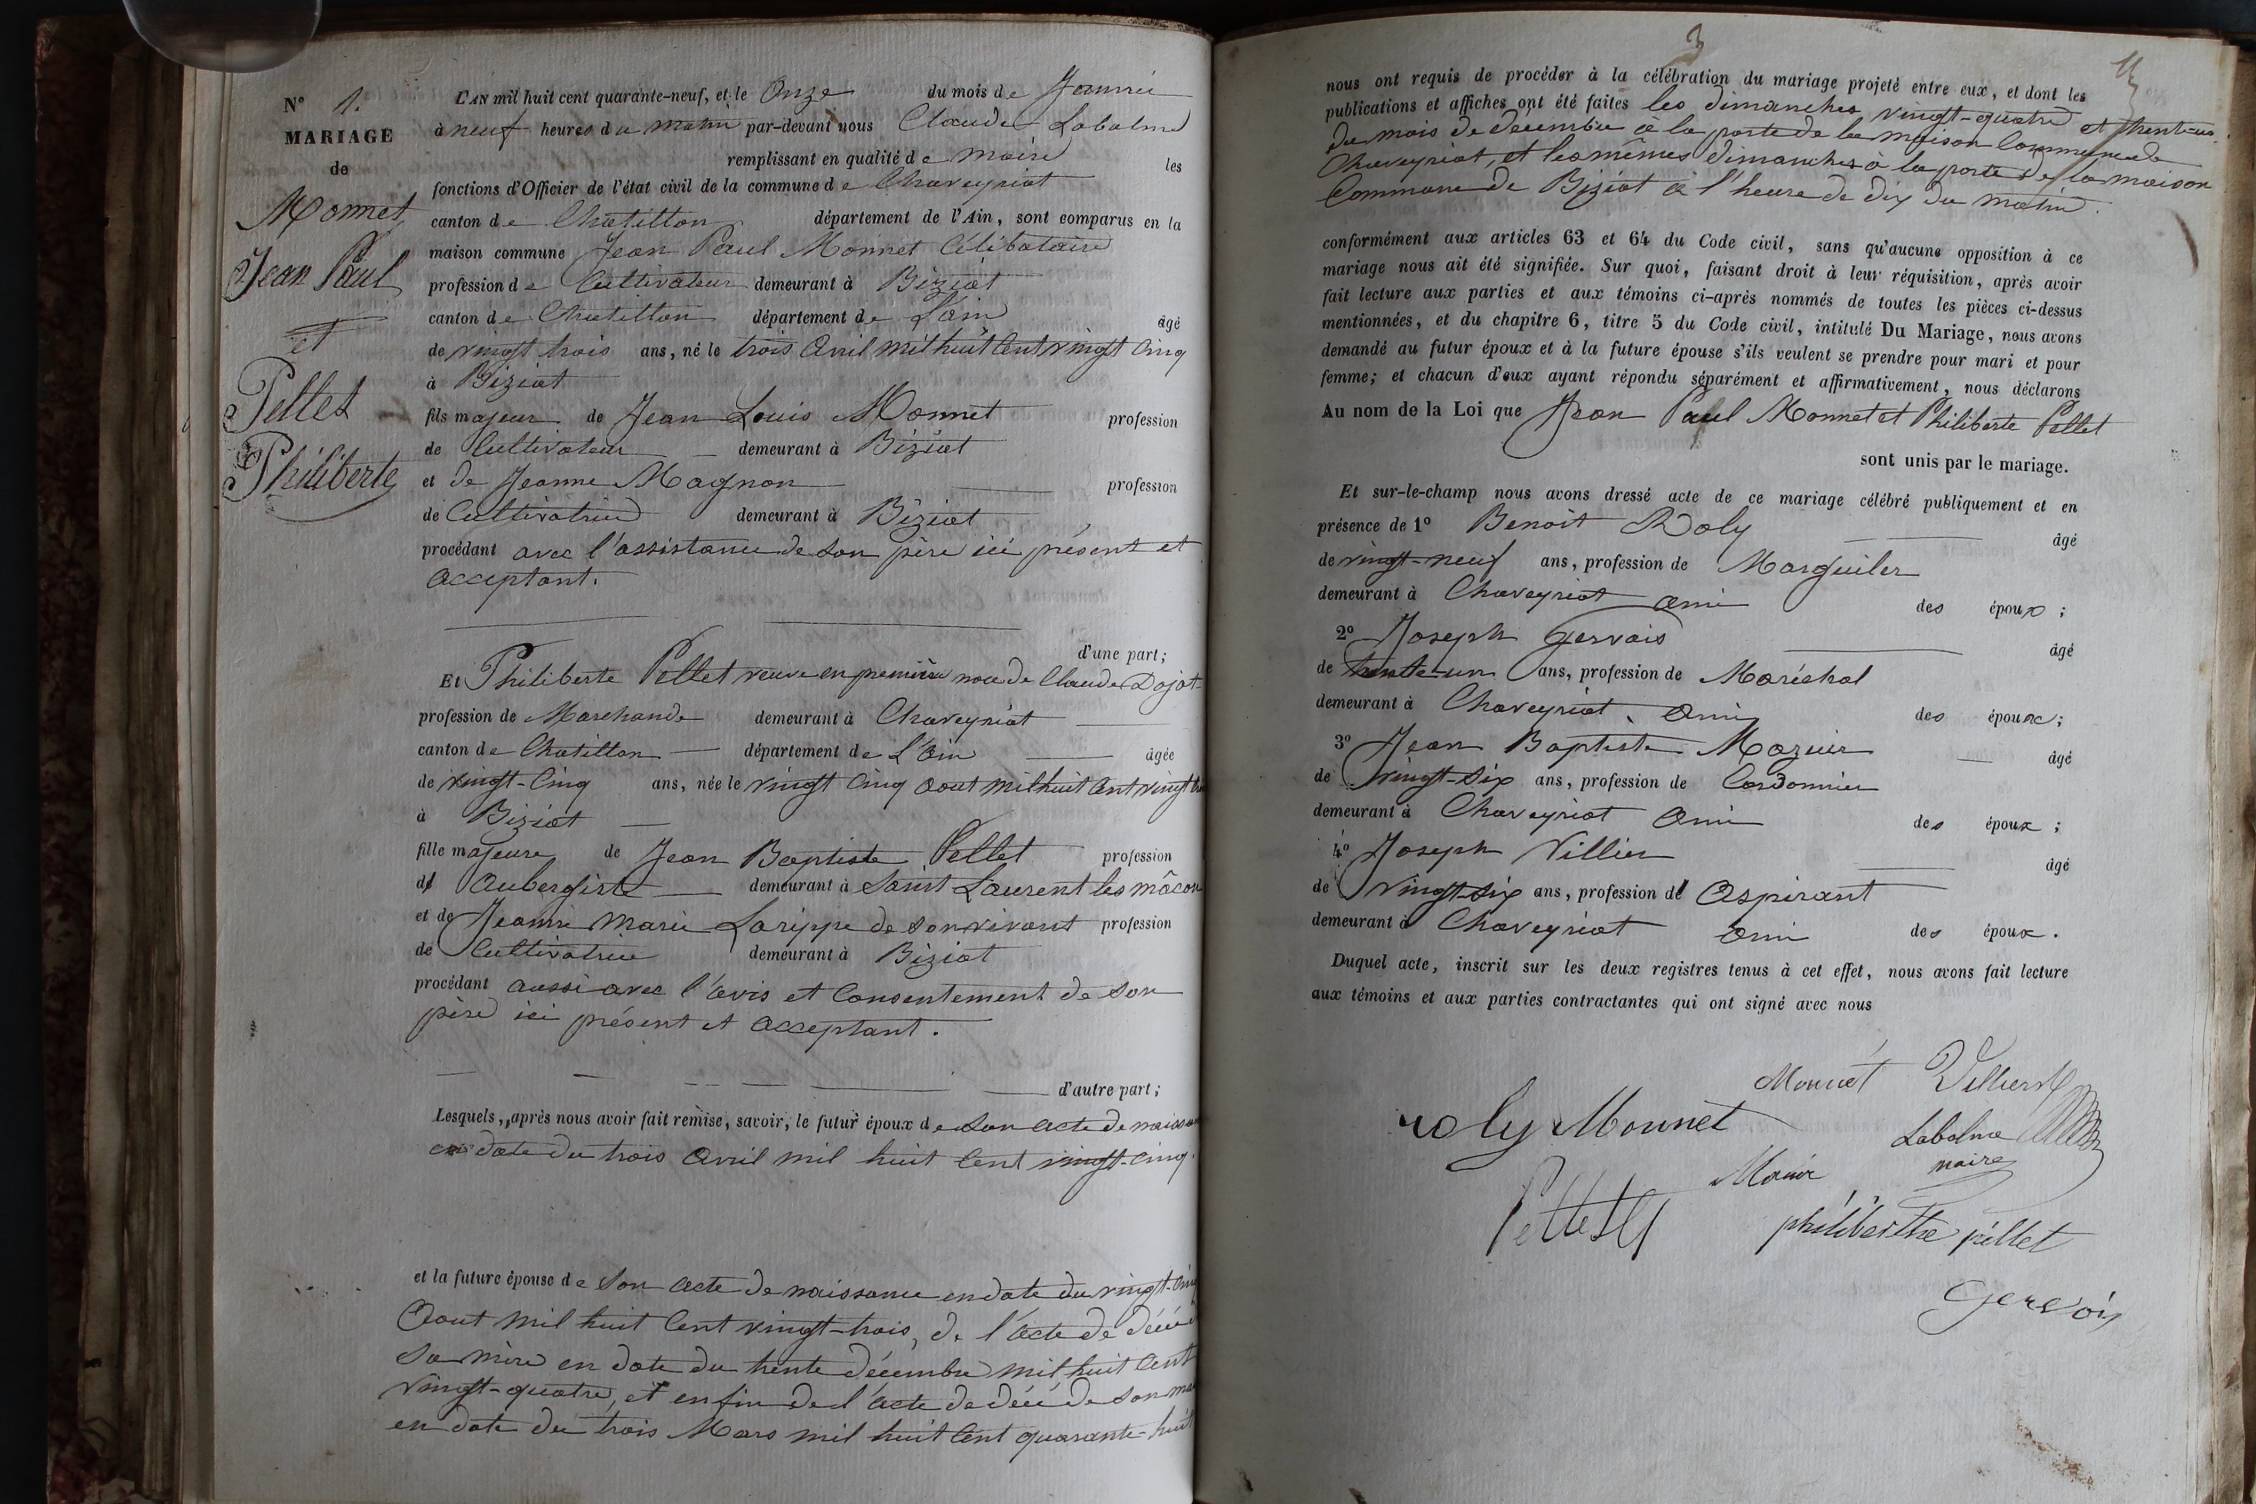 N° 1.
MARIAGE
de
Monnet
Jean Paul
et
Pellet
Philiberte
L'AN mil huit cent quarante-neuf, et le Onze du mois de Janvier
à neuf heures du matin par-devant nous Claude Labalme
remplissant en qualité de maire les
fonctions d'Officier de l'état civil de la commune de Chaveyriat
canton de Chatillon département de l'Ain, sont comparus en la
maison commune Jean Paul Monnet Célibataire
profession de Cultivateur demeurant à Biziat
canton de Chatillon département de L'ain âgé
de vingt trois ans, né le trois Avril mil huit Cent vingt Cinq
à Biziat
fils majeur de Jean Louis Monnet profession
de Cultivateur demeurant à Biziat
et de Jeanne Magnon profession
de Cultivatrice demeurant à Biziat
procédant avec l'assistance de son père ici présent et
acceptant.
d'une part;
Et Philiberte Pellet veuve en première noce de Claude Dojat
profession de Marchande demeurant à Chaveyriat
canton de Chatillon département de L'ain âgée
de vingt-Cinq ans, née le vingt Cinq Aout mil huit Cent vingt
à Biziat
fille majeure de Jean Baptiste Pellet profession
d' Aubergiste demeurant à Saint Laurent les mâcon
et de Jeanne Marie Larippe de son vivant profession
de Cultivatrice demeurant à Biziat
procédant aussi avec l'avis et Consentement de son
père ici présent et acceptant.
d'autre part;
Lesquels, après nous avoir fait remise, savoir, le futur époux de son acte de
en date du trois Avril mil huit Cent vingt-cinq.
et la future épouse de Son acte de naissance en date du vingt-cinq
Aout mil huit Cent vingt-trois, de l'acte de décès
Sa mère en date du trente décembre mil huit Cent
vingt-quatre, et enfin de l'acte de décé de son
en date du trois Mars mil huit Cent quarante-huit
3
nous ont requis de procéder à la célébration du mariage projeté entre eux, et dont les
publications et affiches ont été faites les dimanches vingt-quatre et trente-un
du mois de décembre à la porte de la maison Commune de
Chaveyriat, et les mêmes dimanches à la porte de la maison
Commune de Biziat à l'heure de dix du matin.
conformément aux articles 63 et 64 du Code civil, sans qu'aucune opposition à ce
mariage nous ait été signifiée. Sur quoi, faisant droit à leur réquisition, après avoir
fait lecture aux parties et aux témoins ci-après nommés de toutes les pièces ci-dessus
mentionnées, et du chapitre 6, titre 5 du Code civil, intitulé Du Mariage, nous avons
demandé au futur époux et à la future épouse s'ils veulent se prendre pour mari et pour
femme; et chacun d'eux ayant répondu séparément et affirmativement, nous déclarons
Au nom de la Loi que Jean Paul Monnet et Philiberte Pellet
sont unis par le mariage.
Et sur-le-champ nous avons dressé acte de ce mariage célébré publiquement et en
présence de 1° Benoit Roly âgé
de vingt-neuf ans, profession de Marguiler
demeurant à Chaveyriat ami des époux;
2° Joseph Gervais âgé
de trente-un ans, profession de Maréchal
demeurant à Chaveyriat, ami des époux;
3° Jean Baptiste âgé
de vingt-six ans, profession de Cordonnier
demeurant à Chaveyriat ami des époux;
4° Joseph Villier âgé
de vingt-six ans, profession d' Aspirant
demeurant à Chaveyriat ami des époux.
Duquel acte, inscrit sur les deux registres tenus à cet effet, nous avons fait lecture
aux témoins et aux parties contractantes qui ont signé avec nous
Monnet
roly Monnet
Labalme
maire
philiberthe pellet
Gervais